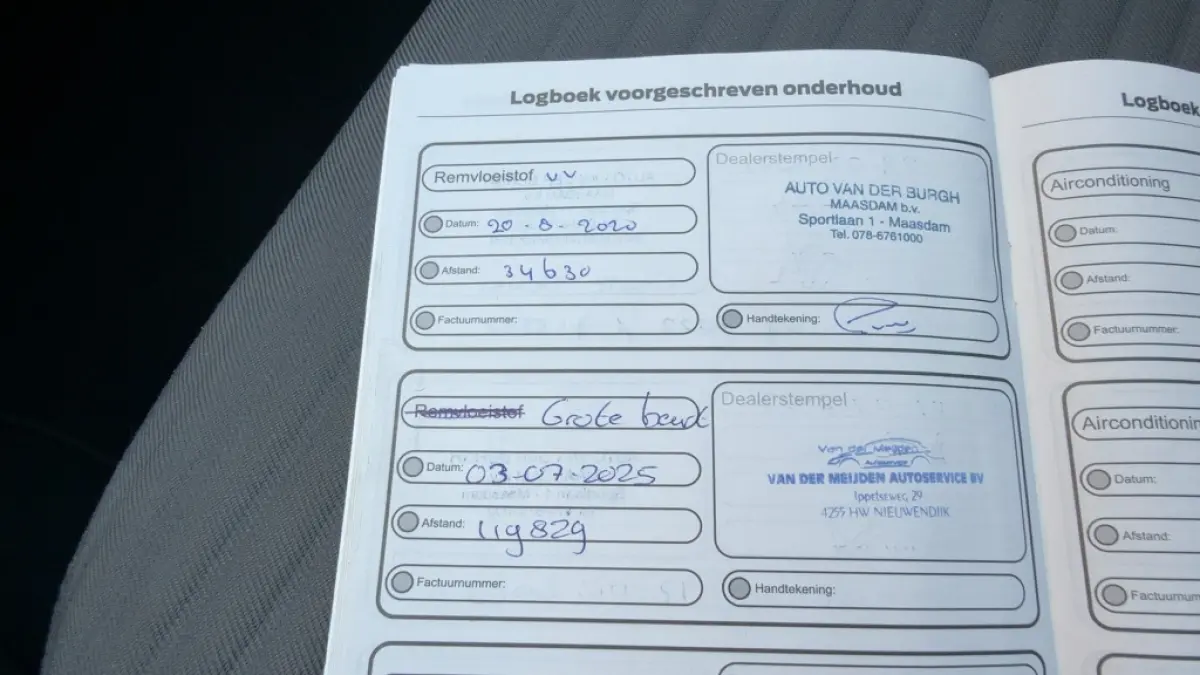 Logboek voorgeschreven onderhoud
Remvloeistof vv
Datum: 20-8-2020
Afstand: 34630
Factuurnummer:
Dealerstempel
AUTO VAN DER BURGH
MAASDAM b.v.
Sportlaan 1 - Maasdam
Tel. 078-6761000
Handtekening:
Remvloeistof Grote beurt
Datum: 03-07-2025
Afstand: 119829
Factuurnummer:
Dealerstempel
Van der Meijden
AUTOSERVICE
VAN DER MEIJDEN AUTOSERVICE BV
Ippelseweg 29
4255 HW NIEUWENDIJK
Handtekening:
Logboek
Airconditioning
Datum:
Afstand:
Factuurnummer:
Airconditionin
Datum:
Afstand:
Factuurnum